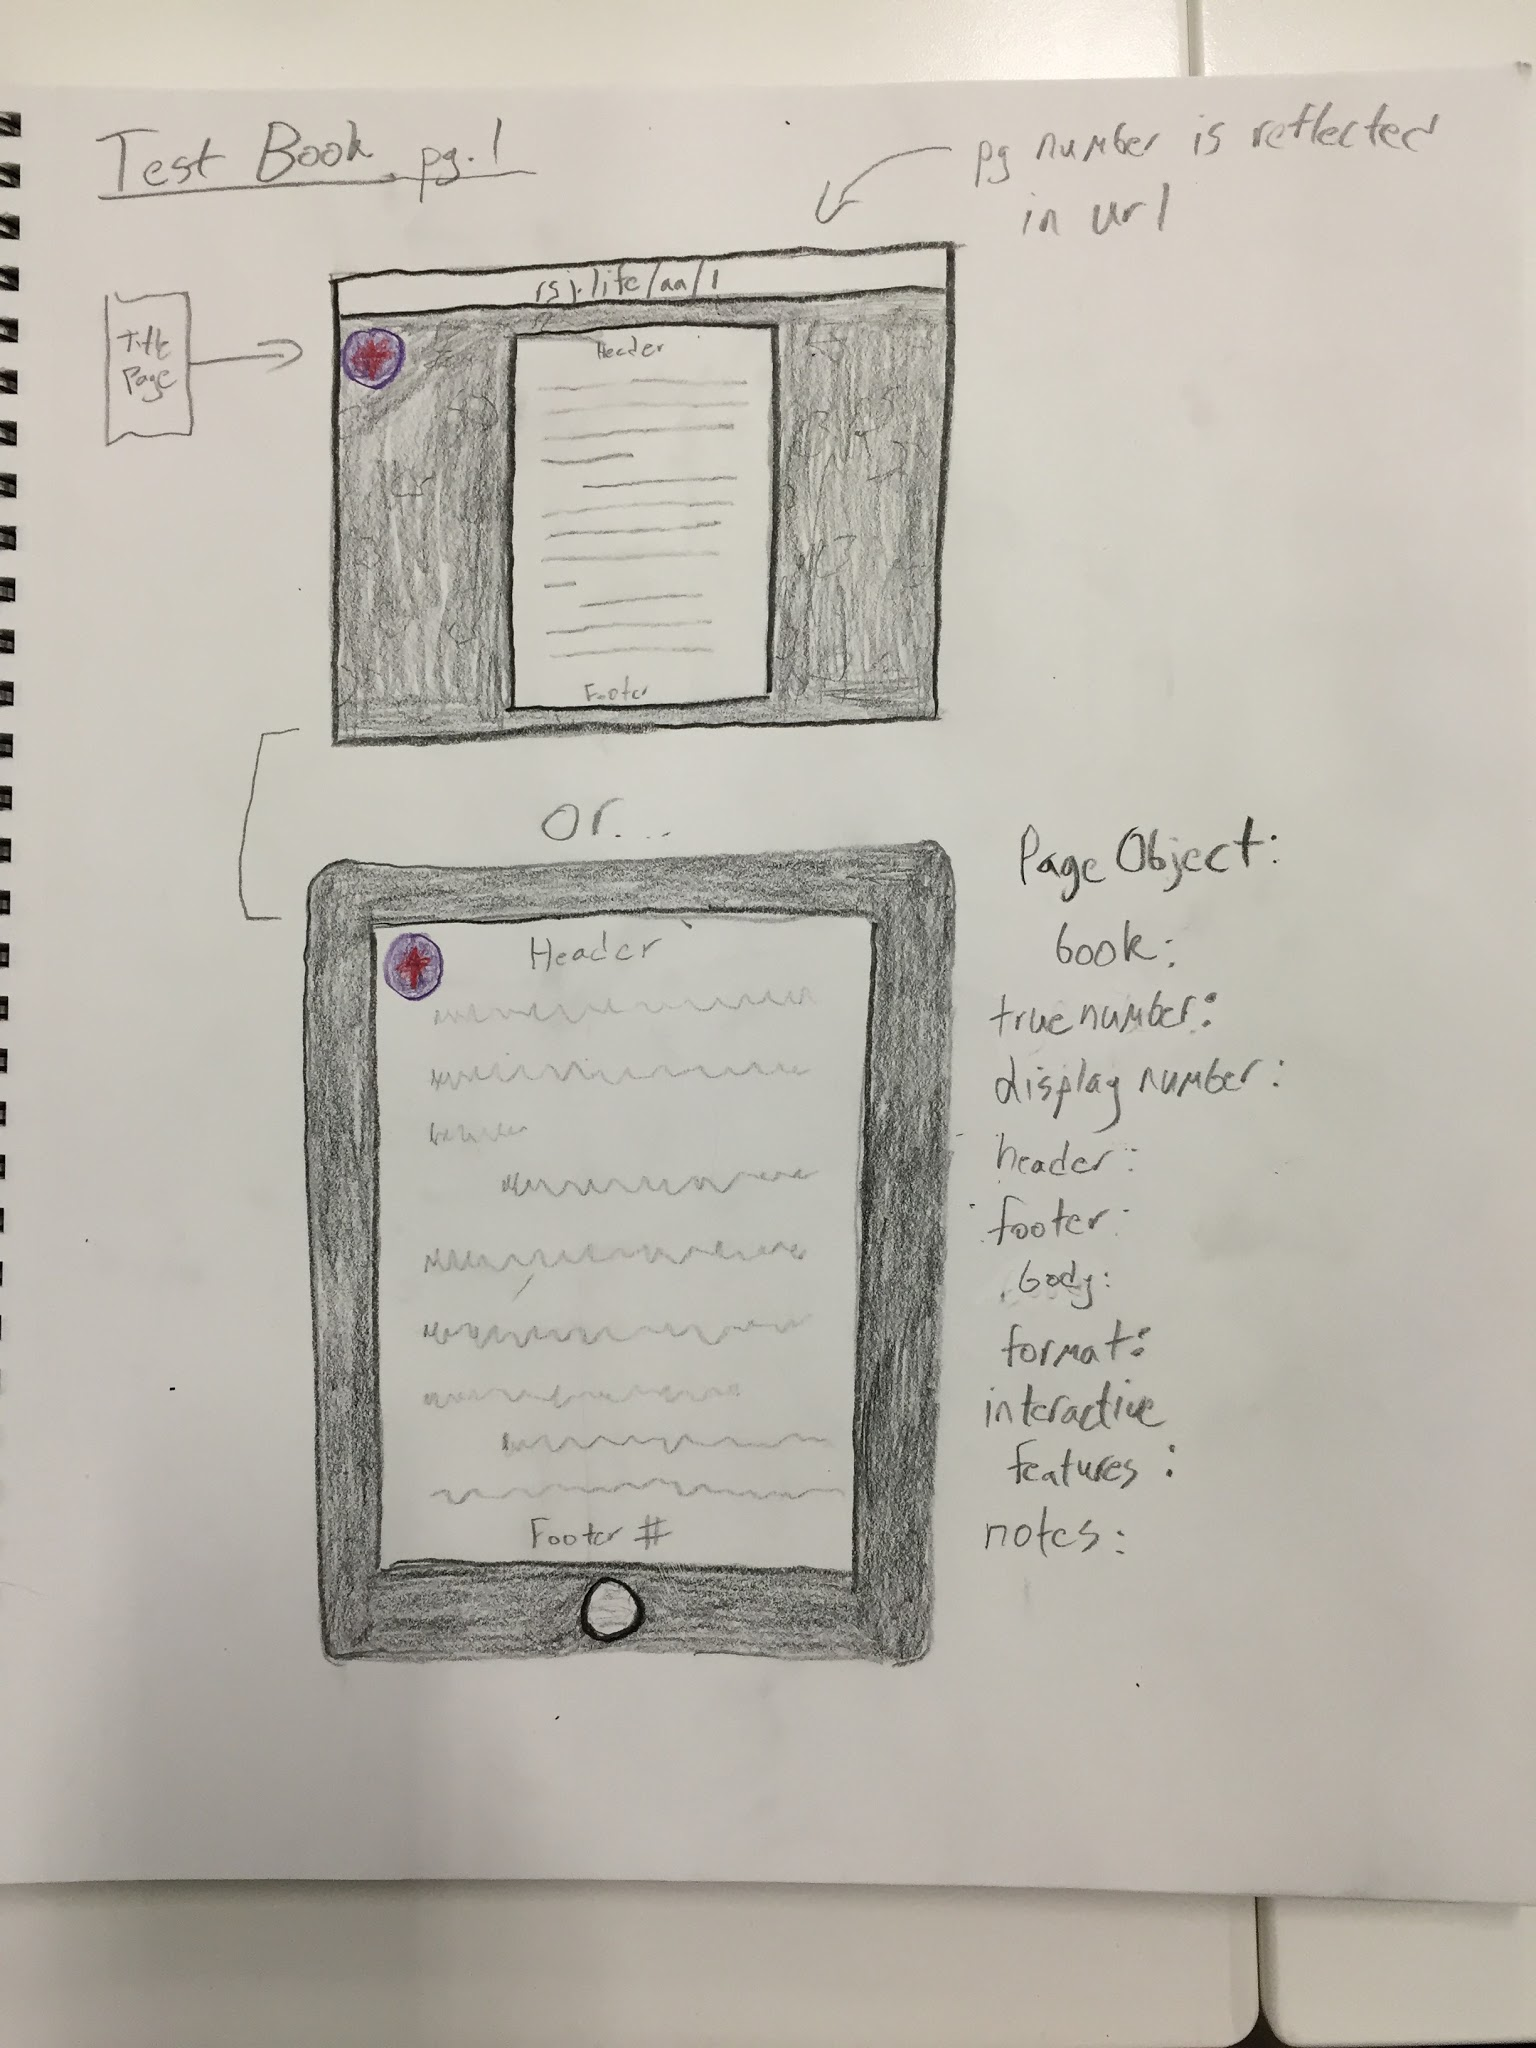 Test Book pg. 1
pg number is reflected
in url
rsj.life/aa/1
Title
Page
Header
Footer
or...
Header
Footer #
Page Object:
book:
true number:
display number:
header:
footer:
body:
format:
interactive
features:
notes: